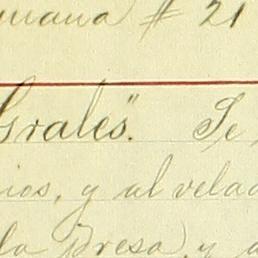 semana # 21
Grales". Se
ios, y al velad
la Presa, y a